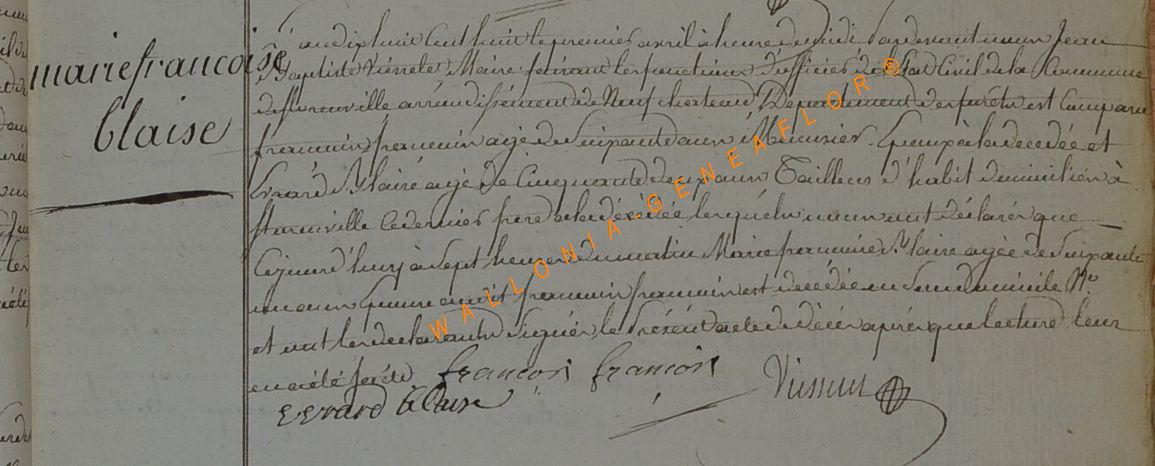 marie francoise
blaise
L'an dix huit cent huit le premier avril à heure de midi pardevant nous Jean
Baptiste Maire faisant les fonctions d'officier de l'Etat Civil de la Commune
arrondissement de Neufchateau Département des forêts est comparu
francois francois agé de soixante ans Menuisier Epoux à la decedée et
Evrard Blaise agé de Cinquante deux ans Tailleur d'habit domicilié à
ce dernier frere à la décédée lesquels nous ont déclaré que
Cejourd'huy à sept heures du matin Marie francoise Blaise agée de soixante
ans Epouse audit francois francois est decedée en Son domicile No.
et ont les declarants Signés le Présent acte de décès après que lecture leur
en a été faite francois francois
evrard blaise
WALLONIA-GENEAFLOR®